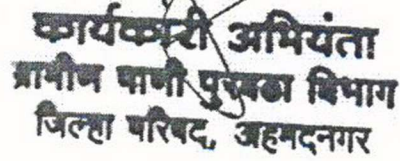 कार्यकारी अभियंता
ग्रामीण पाणी पुरवठा विभाग
जिल्हा परिषद, अहमदनगर